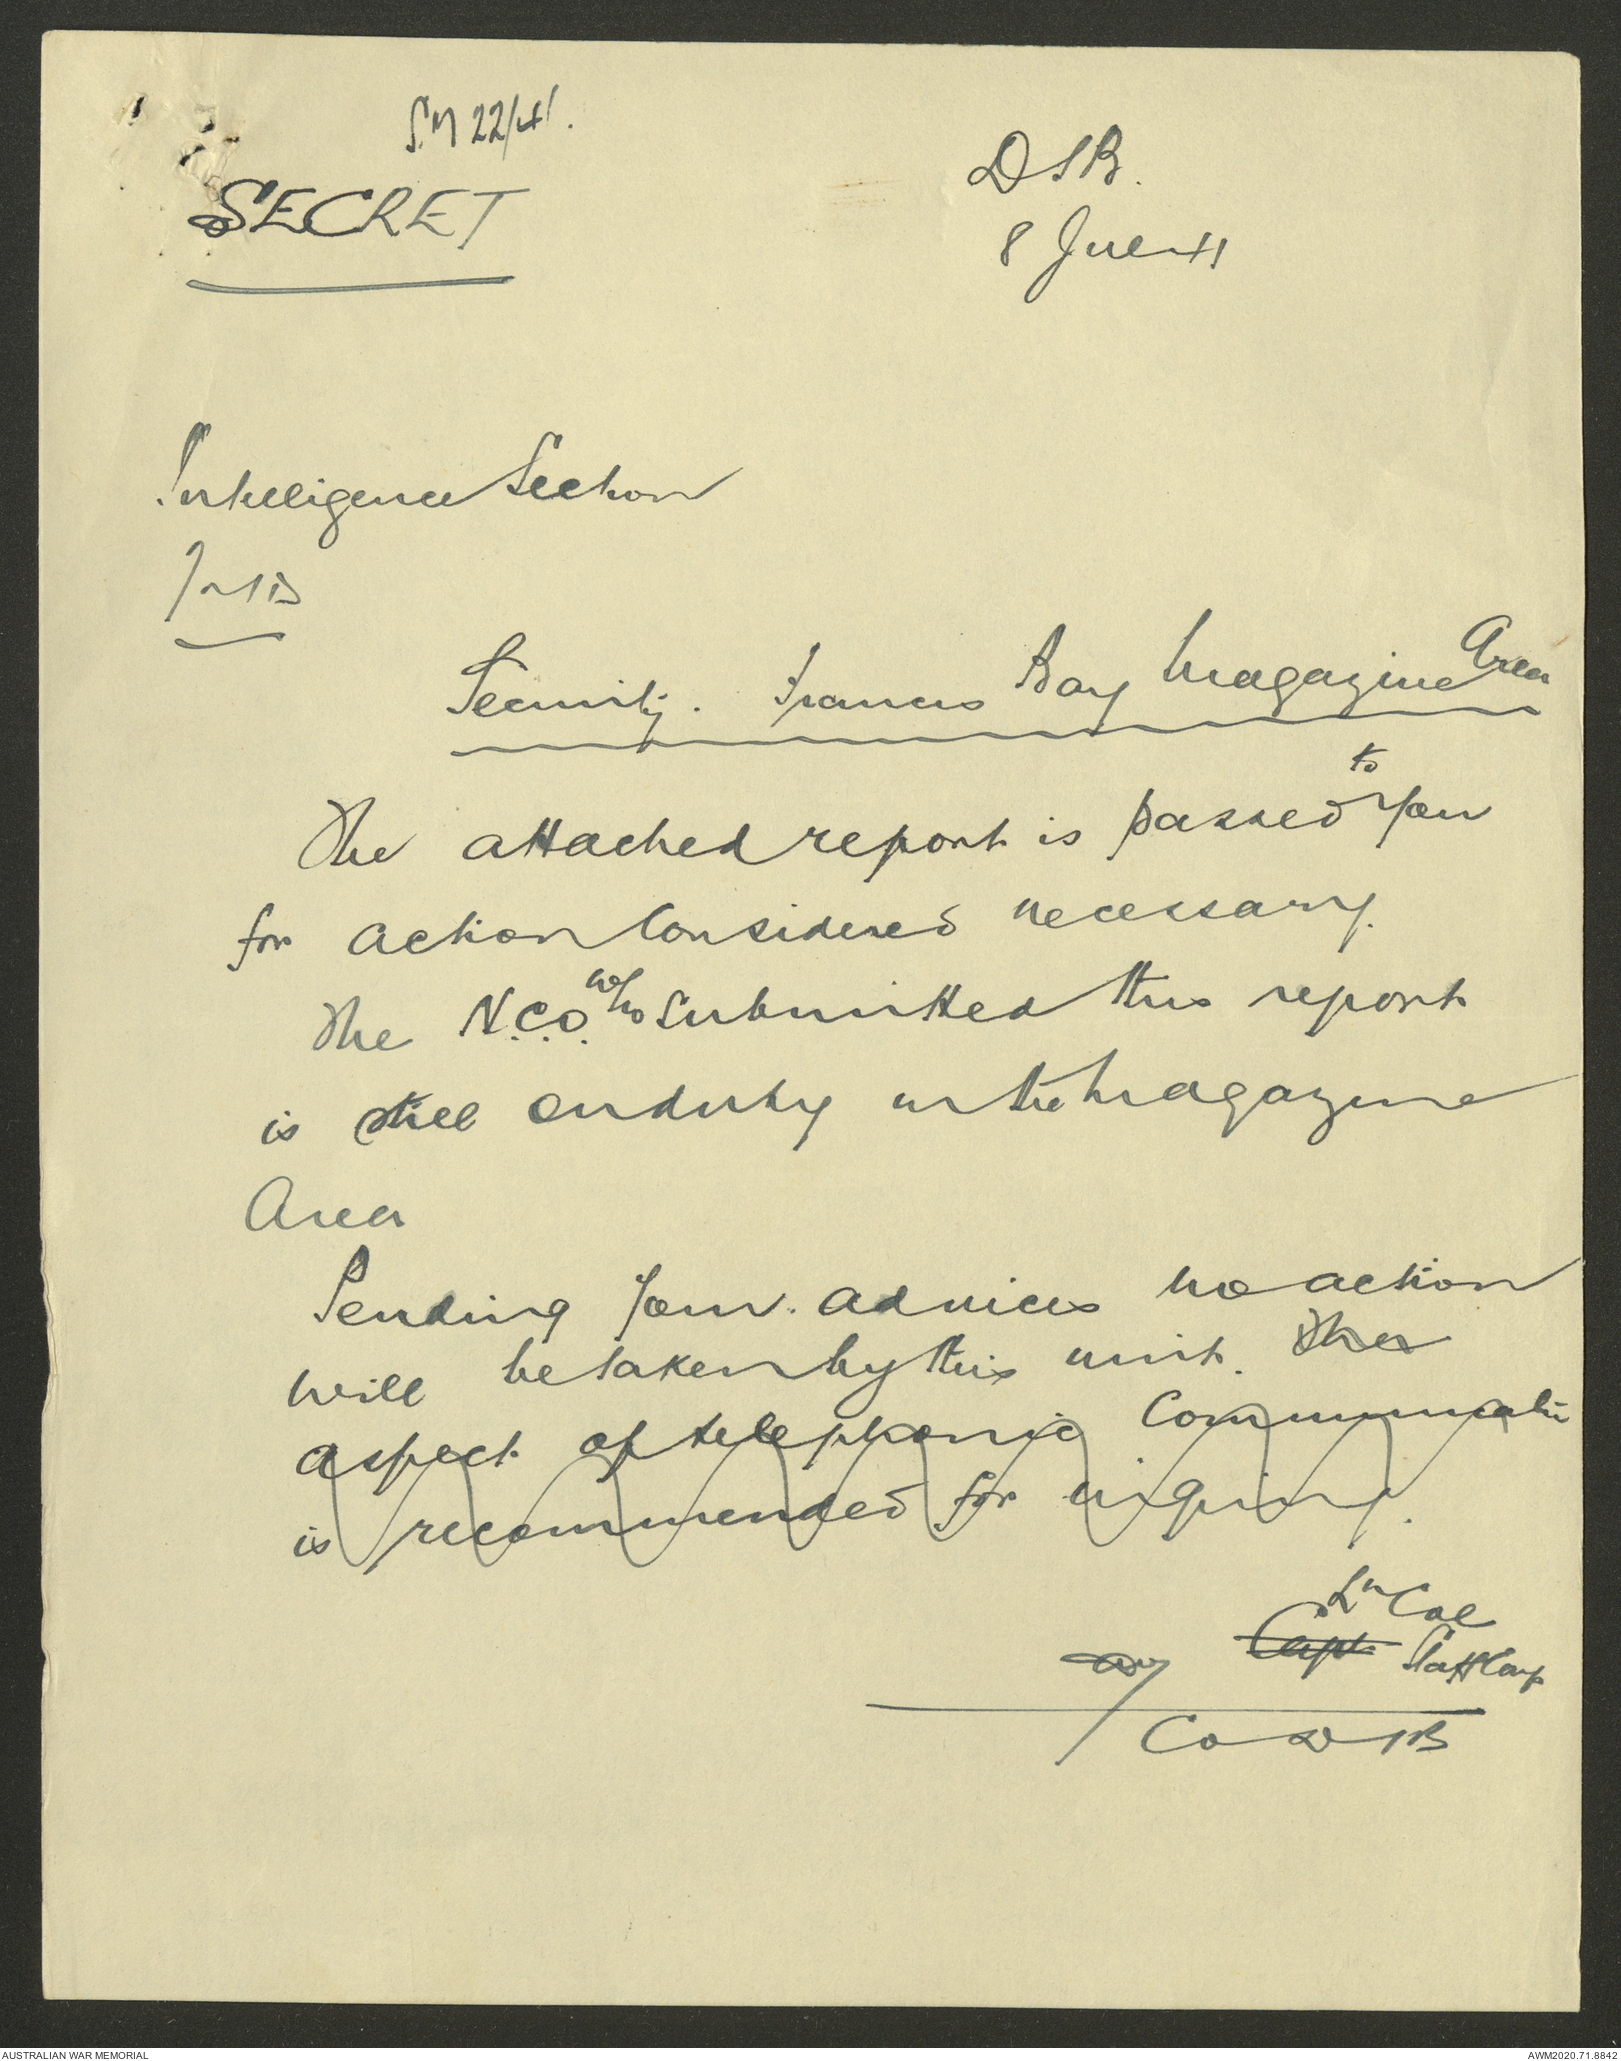 SM 22/41.
SECRET
DIB.
8 Jul 41
Intelligence Section
Security. Frances Bay Magazine Area
The attached report is passed to you
for action considered necessary.
The N.C.O. who submitted this report
is still on duty in the Magazine
Area
Pending your advices no action
will be taken by this unit. The
aspect of telephonic communicatin
is recommended for inquiry.
Lt Col
Capt. Staff Corps
Co DIB
AUSTRALIAN WAR MEMORIAL
AWM2020.71.8842